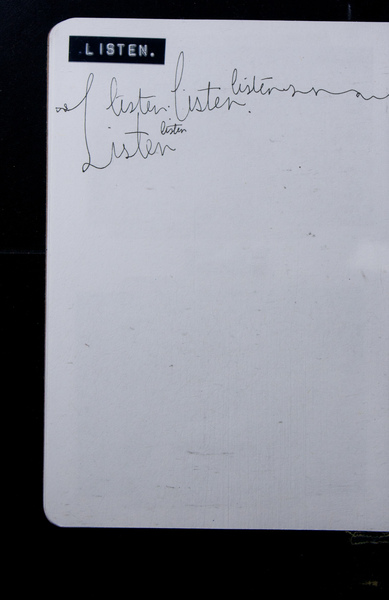 LISTEN.
I listen. listen. listen
listen
Listen